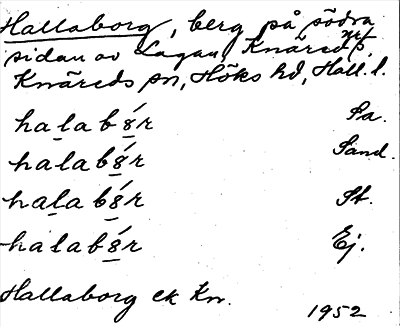 Hallaborg, berg på södra
sidan av Lagan, Knäreds nrf
Knäreds sn, Höks hd, Hall. l.
halabór Pa.
halabór Sand.
halabór St.
halabór Ej.
Hallaborg ek Kn.
1952